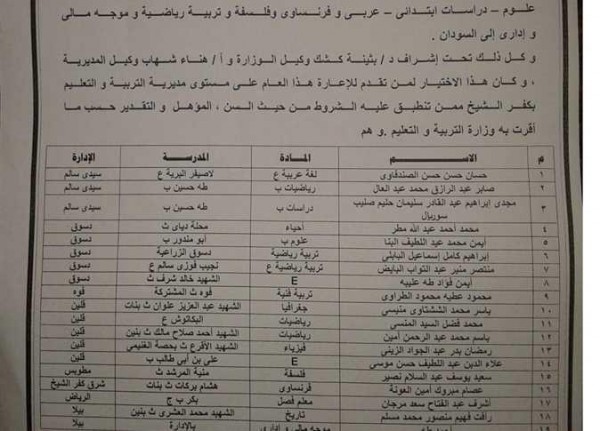 علوم – دراسات ابتدائى – عربى و فرنساوى وفلسفة و تربية رياضية و موجه مالى
و إدارى إلى السودان .
و كل ذلك تحت إشراف د / بثينة كشك وكيل الوزارة و أ / هناء شهاب وكيل المديرية
، و كان هذا الاختيار لمن تقدم للإعارة هذا العام على مستوى مديرية التربية و التعليم
بكفر الشيخ ممن تنطبق عليه الشروط من حيث السن ، المؤهل و التقدير حسب ما
أقرت به وزارة التربية و التعليم . و هم
م الاســـم المـادة المدرسـة الإدارة
١ حسان حسن حسن الصندفاوى لغة عربية ع لاصيفر البرية ع سيدى سالم
٢ صابر عبد الرازق محمد عبد العال رياضيات ب طه حسين ب سيدى سالم
٣ مجدى إبراهيم عبد القادر سليمان حليم صليب سوريال دراسات ب طه حسين ب سيدى سالم
٤ محمد أحمد عبد الله مطر أحياء محلة دياى ث دسوق
٥ أيمن محمد عبد اللطيف البنا علوم ب أبو مندور ب دسوق
٦ إبراهيم كامل إسماعيل البابلى تربية رياضية دسوق الزراعية دسوق
٧ منتصر منير عبد التواب البايض تربية رياضية ع نجيب فوزى سالم ع دسوق
٨ أيمن فؤاد طه علييه E الشهيد خالد شرف ث دسوق
٩ محمود عطيه محمود الطراوى تربية فنية فوه ث المشتركة فوه
١٠ ياسر محمد الششتاوى منيسى جغرافيا الشهيد عبد العزيز علوان ث بنات قلين
١١ محمد فضل السيد المنسى رياضيات البكاتوش ع قلين
١٢ ياسر محمد عبد الرحمن أمين رياضيات الشهيد أحمد صلاح مالك ث بنين قلين
١٣ رمضان بدر عبد الجواد الزينى فيزياء الشهيد الأقرع ث بحصة الغنيمى قلين
١٤ علاء الدين عبد اللطيف حسن موسى E على بن أبى طالب ب قلين
١٥ سعيد يوسف عبد السلام نصير فلسفة منية المرشد ث مطوبس
١٦ عصام مبروك أمين العونة فرنساوى هشام بركات ث بنات شرق كفر الشيخ
١٧ أشرف عبد الفتاح سعد مرجان معلم فصل بكر ب ج الرياض
١٨ رأفت فهيم منصور محمد مسلم تاريخ الشهيد محمد العشرى ث بنين بيلا
١٩ موجه مالى و إدارى بالإدارة بيلا